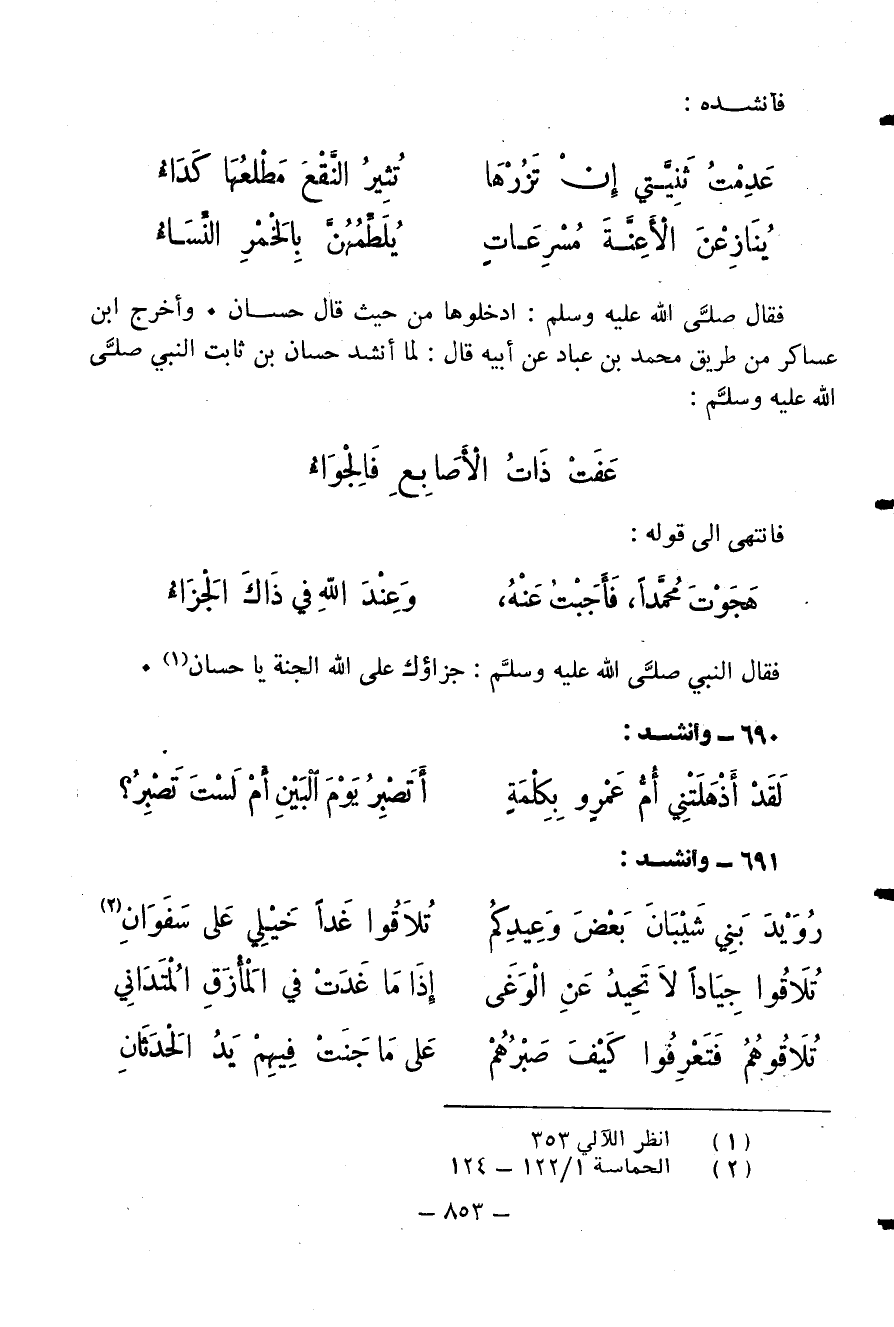 فآنشـــده :
عَدِمْتُ ثَنِيَّـتي إِنْ تَزُرْهَا تُثِيرُ النَّقْعَ مَطْلعُهَا كَدَاءُ
يُنَازِعْنَ الْأَعِنَّـةَ مُسْرِعَـاتٍ يُلَطِّمُهُنَّ بِالْخُمْرِ النِّسَـاءُ
فقال صلَّى الله عليه وسلم : ادخلوها من حيث قال حســان ٠ وأخرج ابن
عساكر من طريق محمد بن عباد عن أبيه قال : لما أنشد حسان بن ثابت النبي صلَّى
الله عليه وسلَّم :
عَفَتْ ذَاتُ الْأَصَابِعِ فَالْجِوَاءُ
فانتهى الى قوله :
هَجَوْتَ مُحَمَّداً، فَأَجَبْتُ عَنْهُ، وَعِنْدَ اللهِ في ذَاكَ الْجَزَاءُ
فقال النبي صلَّى الله عليه وسلَّم : جزاؤك على الله الجنة يا حسان(١) ٠
٦٩٠ ـ وأنشــد :
لَقَدْ أَذْهَلَتْنِي أُمُّ عَمْرٍو بِكِلْمَةٍ أَتَصْبِرُ يَوْمَ الْبَيْنِ أَمْ لَسْتَ تَصْبِرُ؟
٦٩١ ـ وأنشــد :
رُوَيْدَ بَنِي شَيْبَانَ بَعْضَ وَعِيدِكُمْ تُلَاقُوا غَداً خَيْلِي عَلى سَفَوَانِ(٢)
تُلَاقُوا جِيَاداً لاَ تَحِيدُ عَنِ الْوَغَى إِذَا مَا غَدَتْ في الْمَأْزَقِ الْمُتَدَانِي
تُلَاقُوهُمُ فَتَعْرِفُوا كَيْفَ صَبْرُهُمْ عَلى مَا جَنَتْ فِيهِمْ يَدُ الْحَدَثَانِ
(١) انظر اللآلي ٣٥٣
(٢) الحماسة ١/١٢٢ ـ ١٢٤
ـ ٨٥٣ ـ